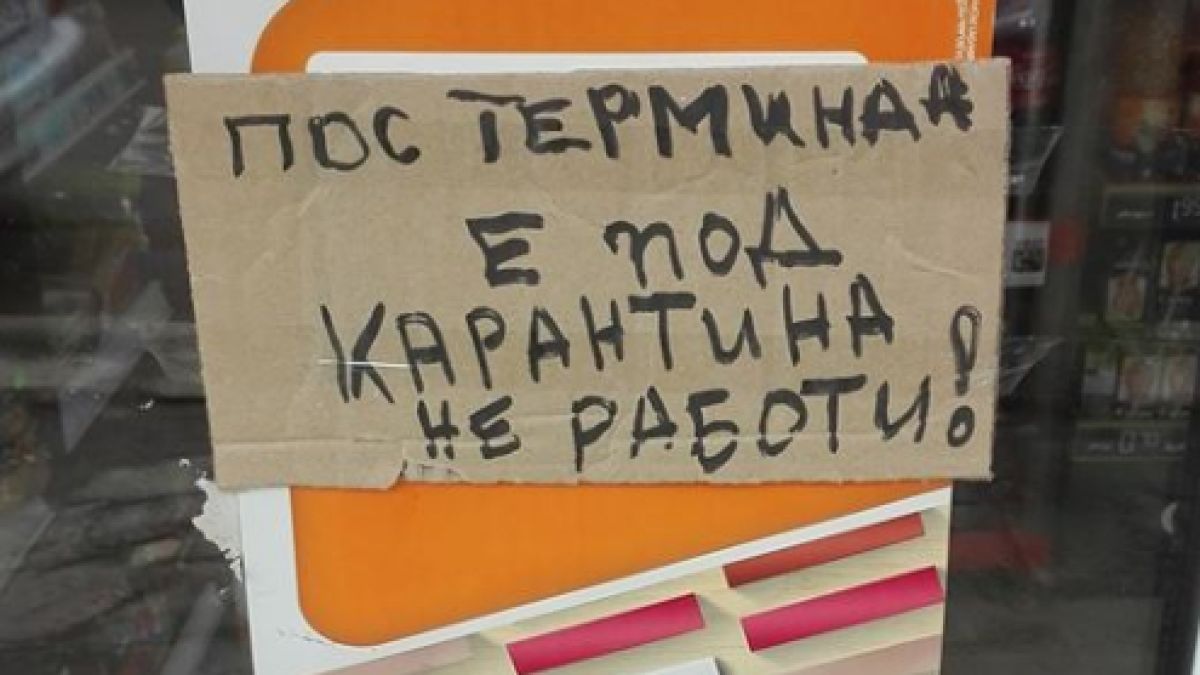 ПОС ТЕРМИНАЛА
Е ПОД
КАРАНТИНА
НЕ РАБОТИ!